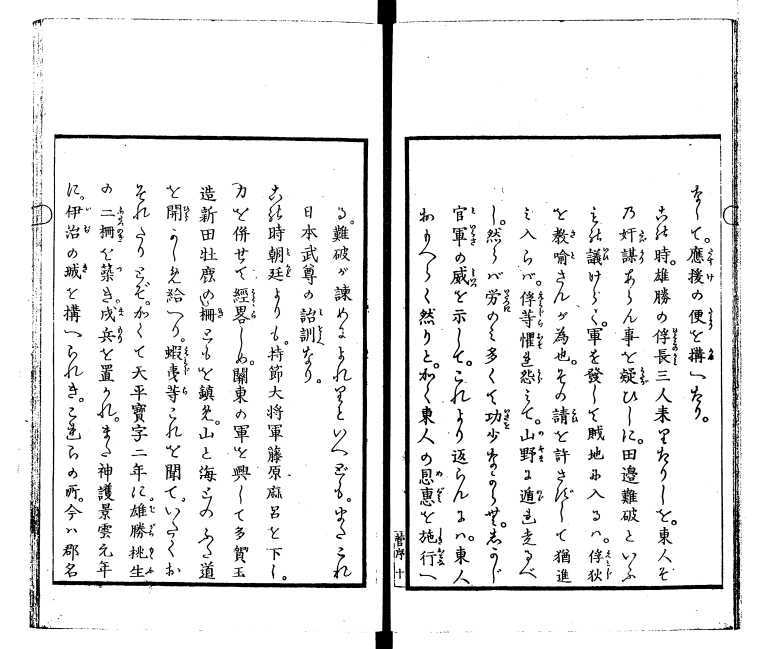 なして。應援の便を構へたり。
この時。雄勝の俘長三人来りたりしを。東人ぞ
乃奸謀あらん事を疑ひしに。田邊難破といふ
もの議けらく。軍を發して賊地に入るハ。俘狄
を教喩さんが為也。その請を許さずして猶進
み入らば。俘等懼れ怨みて。山野に遁れ走るべ
し。然らバ労のミ多くて功少なからむ。しかじ
官軍の威を示して。これより返らんにハ。東人
おもへらく然りと。かく東人の恩惠を施行へ
菅序 十
る。難破が諫めによれりといへども。またこれ
日本武尊の詔訓なり。
この時朝廷よりも。持節大将軍藤原麻呂を下し。
力を併せて經畧しぬ。關東の軍を興して多賀玉
造新田牡鹿の柵どもを鎮め。山と海とのふた道
を開かしめ給へり。蝦夷等これを聞て。いたくお
それたりとぞ。かくて天平寳字二年に。雄勝桃生
の二柵を築き。戍兵を置かれ。また神護景雲元年
に。伊治の城を構へられき。これらの所。今ハ郡名